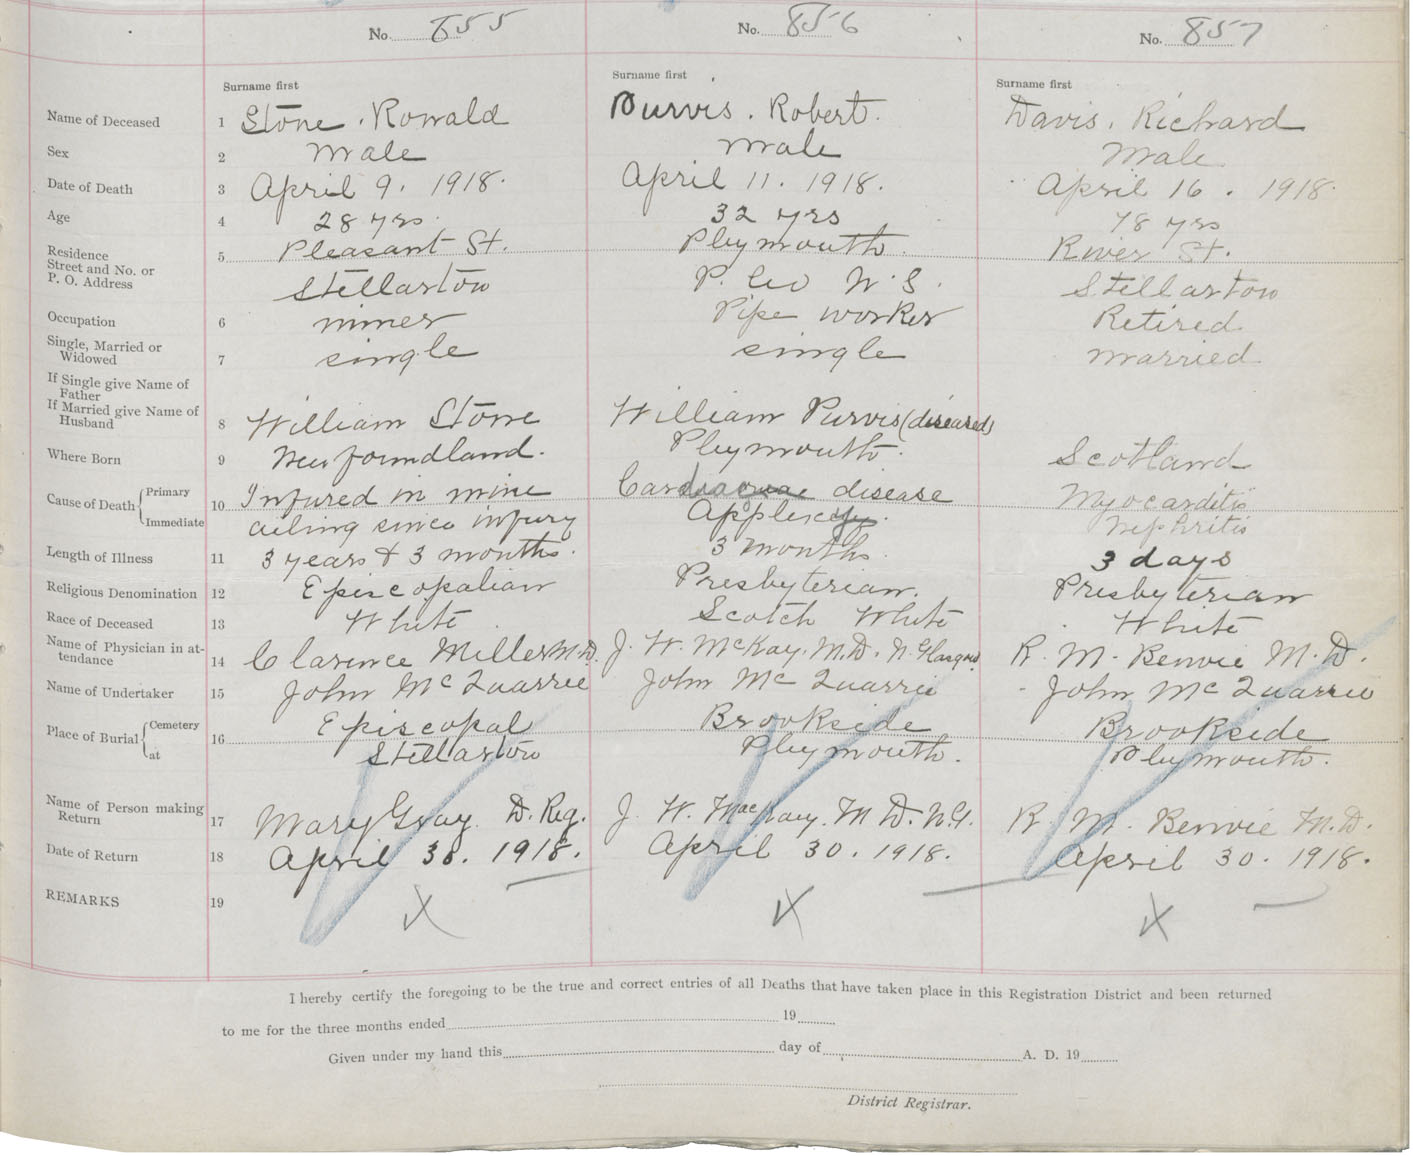 No. 855 No. 856 No. 857
Surname first Surname first Surname first
Name of Deceased 1 Stone. Ronald Purvis. Robert. Davis. Richard
Sex 2 Male Male Male
Date of Death 3 April 9. 1918. April 11. 1918. April 16. 1918.
Age 4 28 yrs. 32 yrs 78 yrs
Residence 5 Pleasant St. Plymouth. River St.
Street and No. or
P. O. Address Stellarton P. Co N.S. Stellarton
Occupation 6 miner Pipe worker Retired
Single, Married or
Widowed 7 single single married
If Single give Name of
Father
If Married give Name of
Husband 8 William Stone William Purvis (diseased)
Where Born 9 Newfoundland. Plymouth. Scotland
Cause of Death { Primary 10 Injured in mine disease Myocarditis
Immediate ailing since injury Nephritis
Length of Illness 11 3 years & 3 months. 3 months. 3 days
Religious Denomination 12 Episcopalian Presbyterian. Presbyterian
Race of Deceased 13 White Scotch White White
Name of Physician in at-
tendance 14 Clarence Miller M.D. J. W. McKay. M.D. N. Glasgow R. M. Benvie M.D.
Name of Undertaker 15 John McQuarrie John McQuarrie John McQuarrie
Place of Burial { Cemetery 16 Episcopal Brookside Brookside
at Stellarton Plymouth. Plymouth.
Name of Person making
Return 17 Mary Gray D. Reg. J. W. MacKay. M D. N.G. R. M. Benvie M.D.
Date of Return 18 April 30. 1918. April 30. 1918. April 30. 1918.
REMARKS 19 X X X
I hereby certify the foregoing to be the true and correct entries of all Deaths that have taken place in this Registration District and been returned
to me for the three months ended 19
Given under my hand this day of A. D. 19
District Registrar.